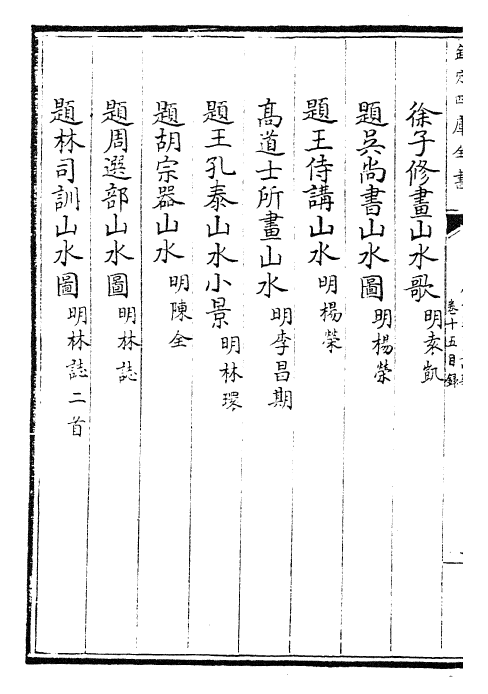 欽定四庫全書
卷十五目錄
徐子修畫山水歌 明袁凱
題吳尚書山水圖 明楊榮
題王侍講山水 明楊榮
高道士所畫山水 明李昌期
題王孔泰山水小景 明林環
題胡宗器山水 明陳全
題周選部山水圖 明林誌
題林司訓山水圖 明林誌二首